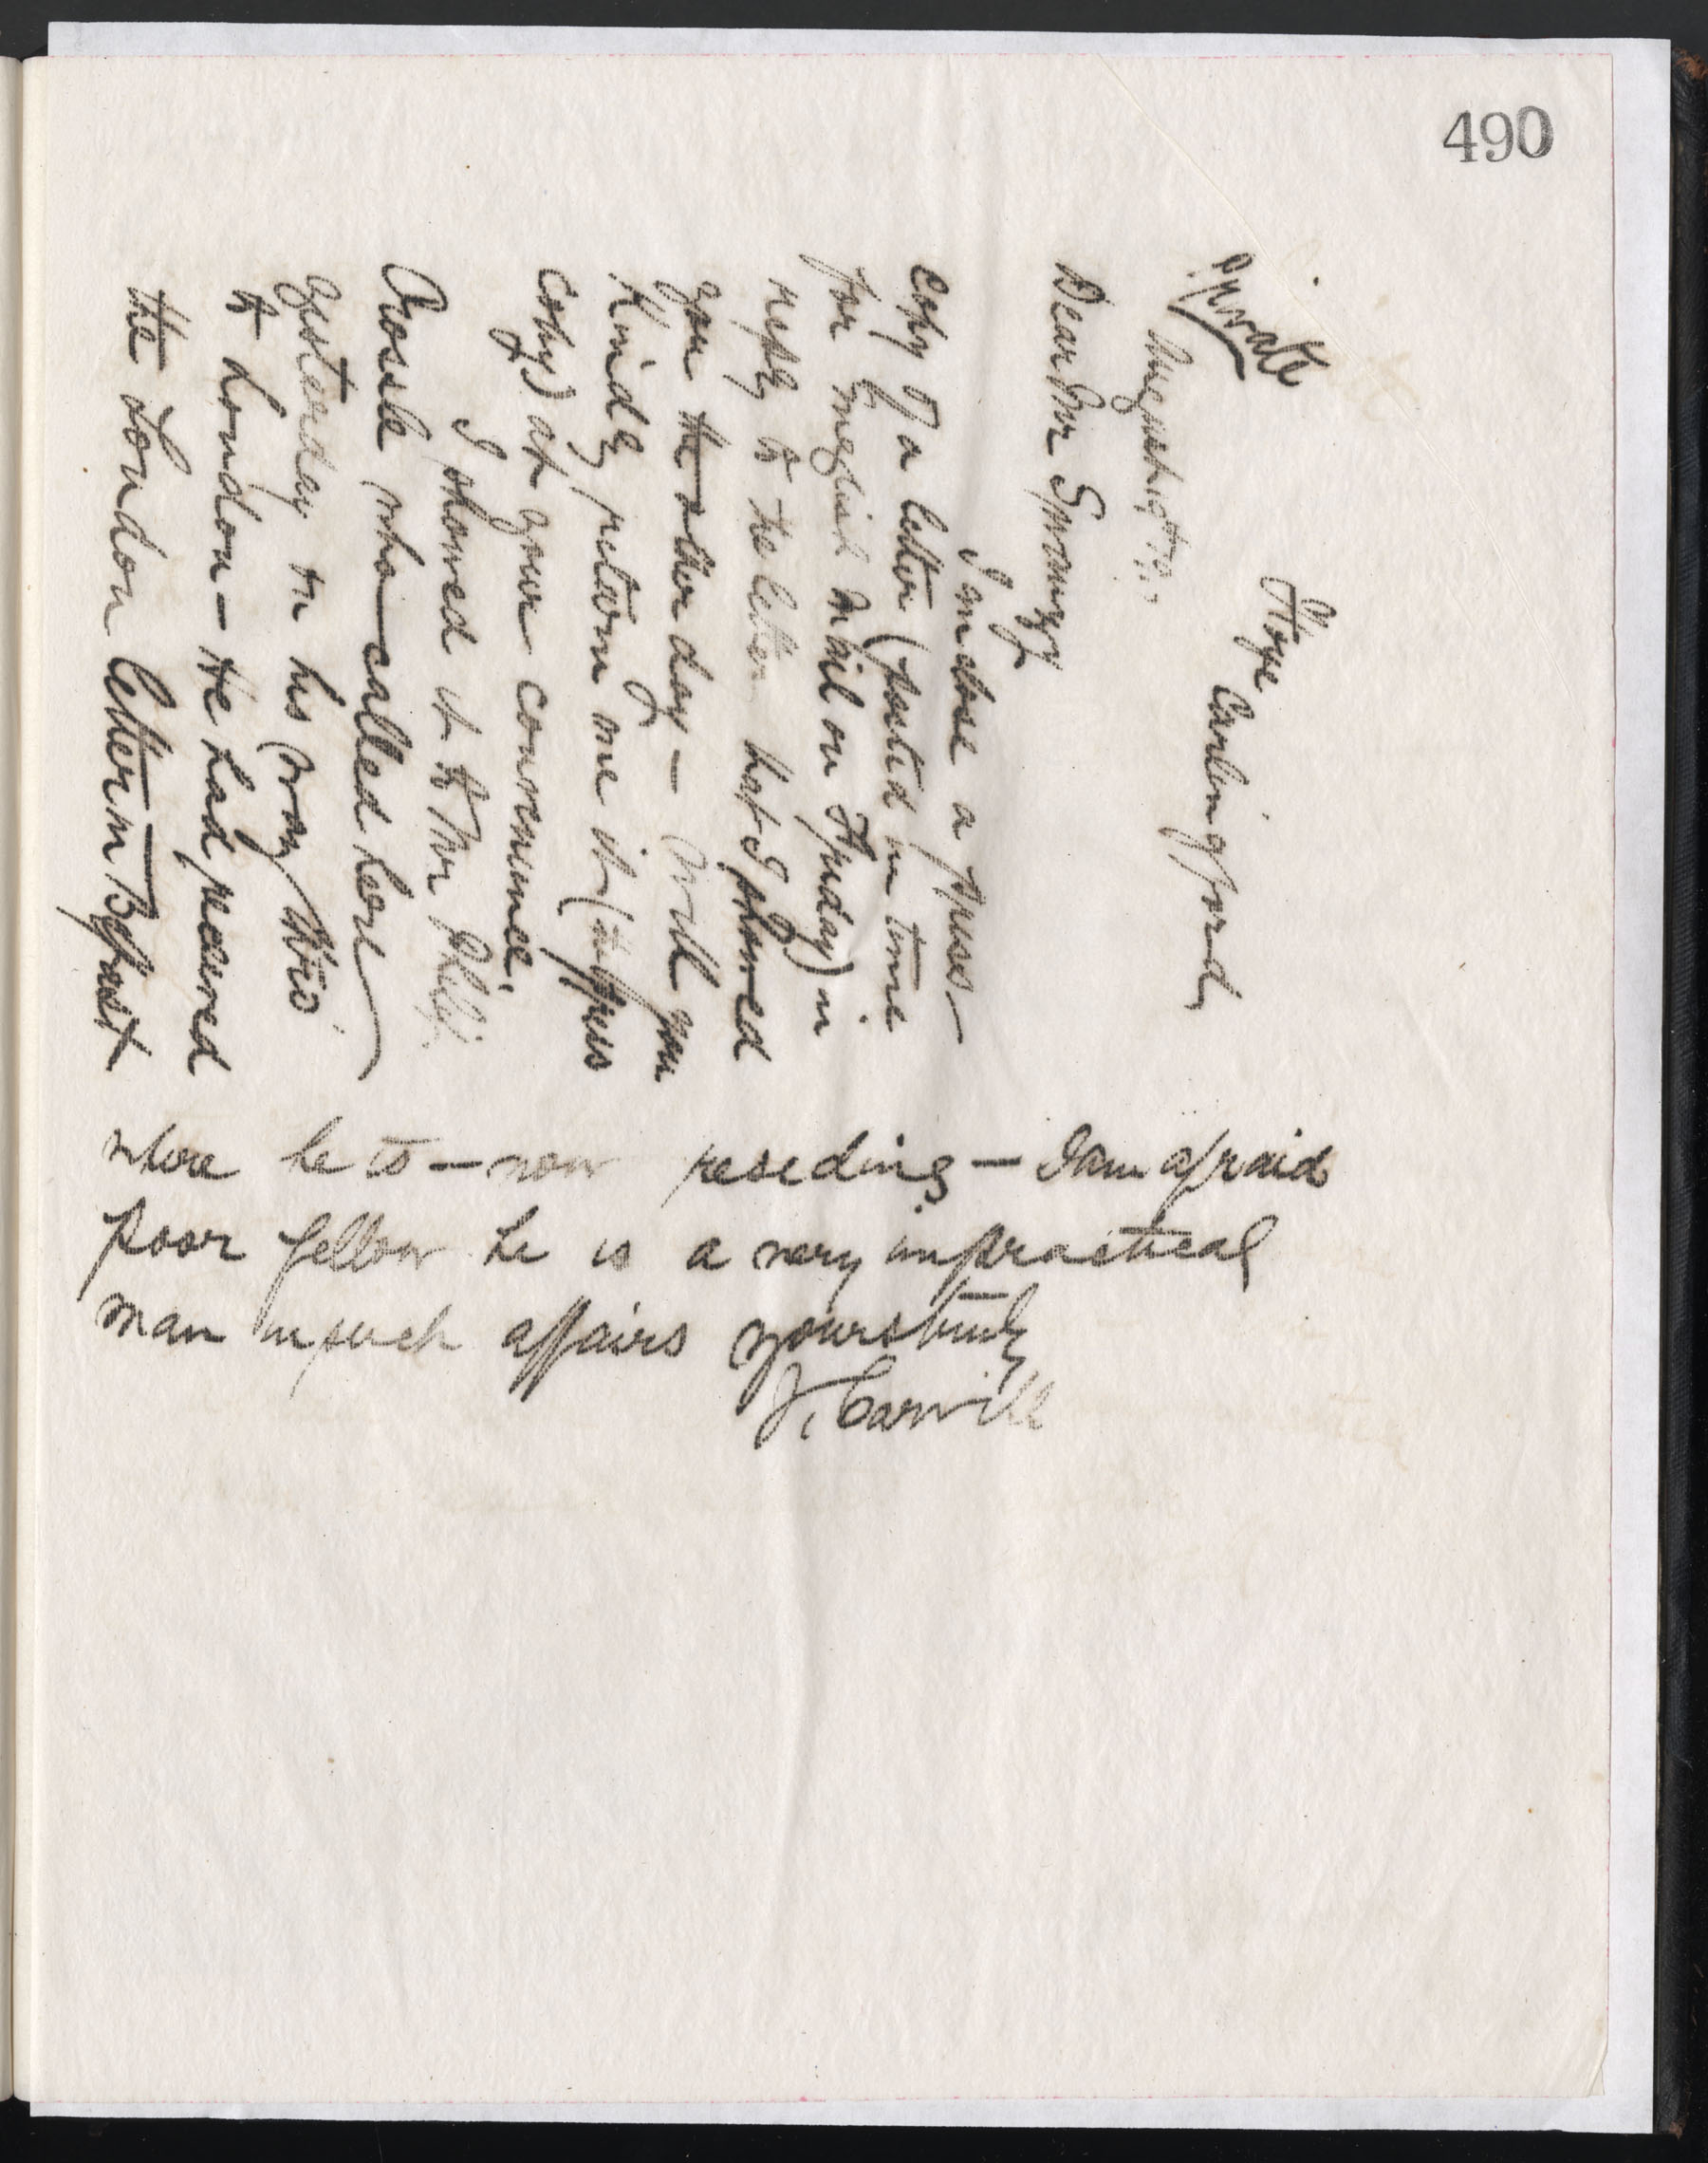 490
Private
Hope
Carlingford
August
Dear Mr
I inclose a press
copy of a letter (posted in time
for English Mail on Friday) in
reply to the letter that I showed
you the other day — Will you
Kindly return me it (the press
copy) at your convenience.
I showed it to Mr Philip
Crossle who called here
yesterday on his way via
to London — He had received
the London letter in Belfast
where he is — now reseding — I am afraid
poor fellow he is a very impractical
man in such affairs yours truly
J. Carvill